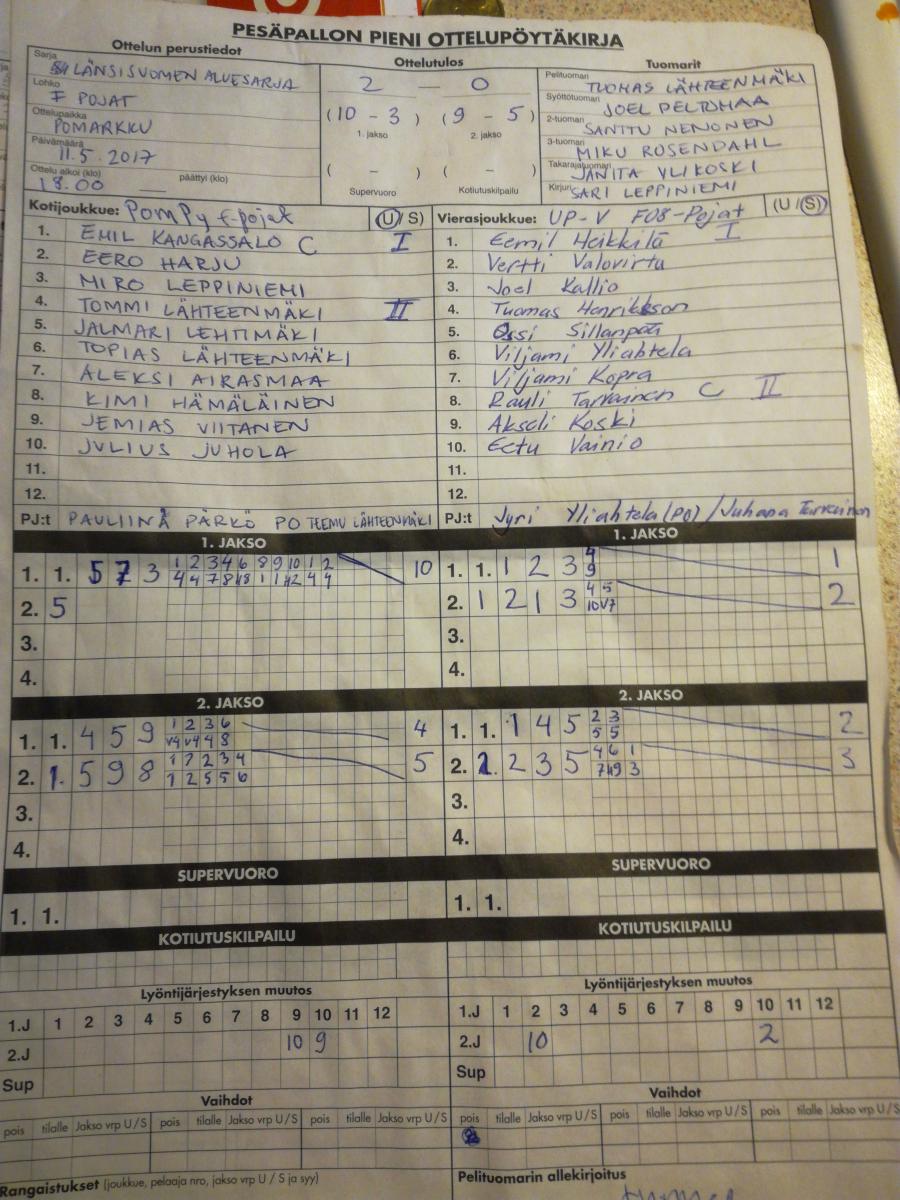 PESÄPALLON PIENI OTTELUPÖYTÄKIRJA
Ottelun perustiedot
Sarja LÄNSISUOMEN ALUESARJA
Lohko F POJAT
Ottelupaikka POMARKKU
Päivämäärä 11.5.2017
Ottelu alkoi (klo) 18.00 päättyi (klo)
Ottelutulos
2 — 0
(10 - 3) (9 - 5)
1. jakso 2. jakso
( - ) ( - )
Supervuoro Kotiutuskilpailu
Tuomarit
Pelituomari TUOMAS LÄHTEENMÄKI
Syöttötuomari JOEL PELTOMAA
2-tuomari SANTTU NENONEN
3-tuomari MIKU ROSENDAHL
Takarajatuomari JANITA YLIKOSKI
Kirjuri SARI LEPPINIEMI
Kotijoukkue: POMPY F-POJAT (U / S)
1. EMIL KANGASSALO C I
2. EERO HARJU
3. MIRO LEPPINIEMI
4. TOMMI LÄHTEENMÄKI II
5. JALMARI LEHTIMÄKI
6. TOPIAS LÄHTEENMÄKI
7. ALEKSI AIRASMAA
8. KIMI HÄMÄLÄINEN
9. JEMIAS VIITANEN
10. JULIUS JUHOLA
11.
12.
PJ:t PAULIINA PÄRKÖ PO TEEMU LÄHTEENMÄKI
Vierasjoukkue: UP-V F08-Pojat (U / S)
1. Eemil Heikkilä I
2. Vertti Valovirta
3. Joel Kallio
4. Tuomas Henriksson
5. Ossi Sillanpää
6. Viljami Yliahtela
7. Viljami Kopra
8. Rauli Tarvainen C II
9. Akseli Koski
10. Eetu Vainio
11.
12.
PJ:t Jyri Yliahtela (PO) / Juhana Tarvainen
1. JAKSO
1. 1. 5 7 3 1 2 3 4 6 8 9 10 1 2 10
2. 5
3.
4.
1. JAKSO
1. 1. 1 2 3 4 1
9
2. 1 2 1 3 4 5 2
10 V7
3.
4.
2. JAKSO
1. 1. 4 5 9 1 2 3 6 4
V4 V4 4 8
2. 1. 5 9 8 1 1 2 3 4 5
1 2 5 5 6
3.
4.
2. JAKSO
1. 1. 1 4 5 2 3 2
5 5
2. 1. 2 3 5 4 6 1 3
3.
4.
SUPERVUORO
1. 1.
SUPERVUORO
1. 1.
KOTIUTUSKILPAILU
KOTIUTUSKILPAILU
Lyöntijärjestyksen muutos
1.J 1 2 3 4 5 6 7 8 9 10 11 12
2.J 10 9
Sup
Lyöntijärjestyksen muutos
1.J 1 2 3 4 5 6 7 8 9 10 11 12
2.J 10 2
Sup
Vaihdot
pois tilalle Jakso vrp U / S pois tilalle Jakso vrp U / S pois tilalle Jakso vrp U / S
Vaihdot
pois tilalle Jakso vrp U / S pois tilalle Jakso vrp U / S pois tilalle Jakso vrp U / S
Rangaistukset (joukkue, pelaaja nro, jakso vrp U / S ja syy)
Pelituomarin allekirjoitus